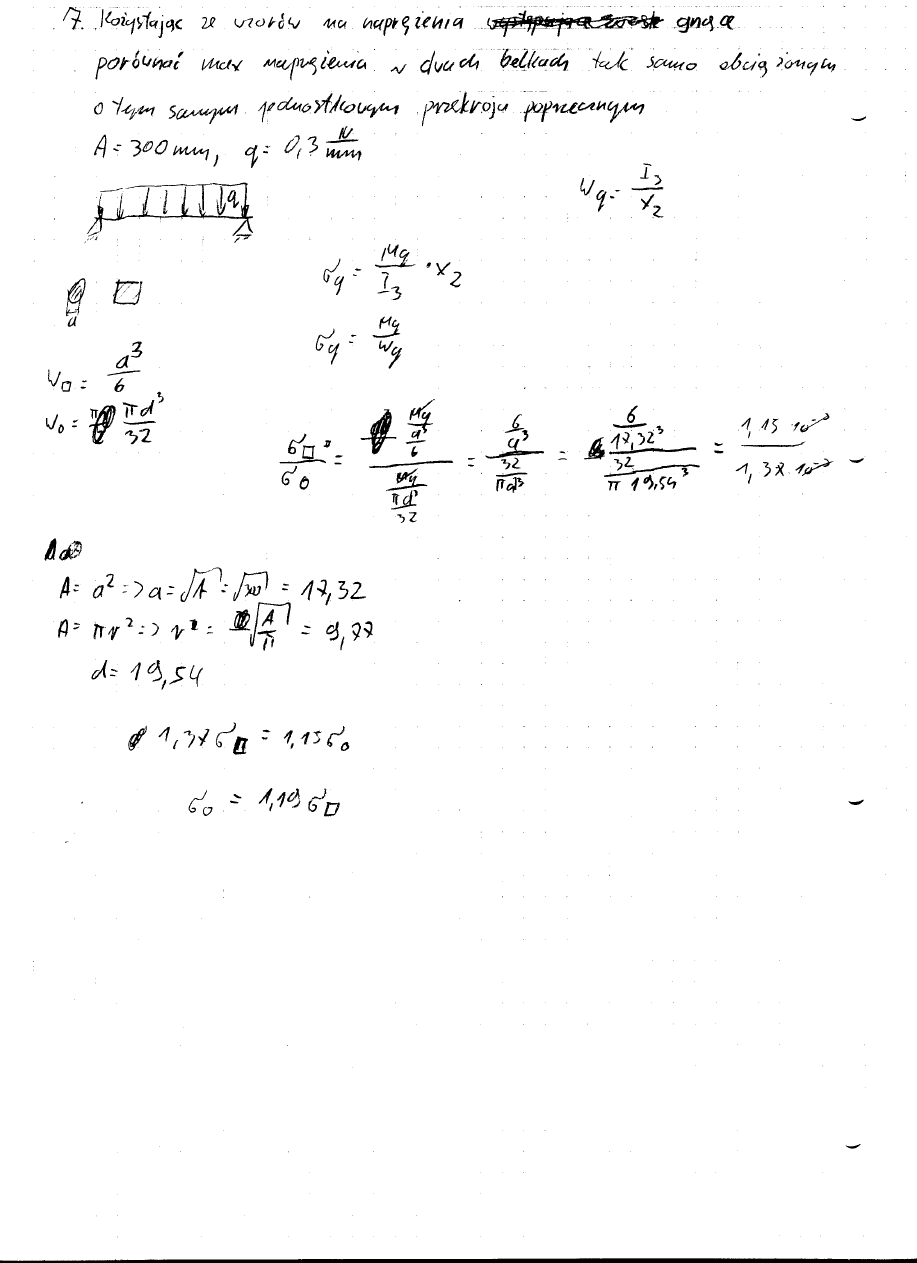 7. Kożystając ze wzorów na naprężenia gnące
porównać max naprężenia w dwach belkach tak samo obciążonym
o tym samym jednostkowym przekroju poprzecznym
A = 300 mm, q = 0,3 N/mm
q
Wg = I3/x2
σg = Mg/I3 · x2
d
σg = Mg/Wg
W□ = a³/6
Wo = πd³/32
σ□/σo = (Mg/(a³/6))/(Mg/(πd³/32)) = (6/a³)/(32/πd³) = (6/17,32³)/(32/π 19,54³) = 1,15 10⁻³/1,37 10⁻³
A = a² => a = √A = √300 = 17,32
A = πr² => r = √(A/π) = 9,77
d = 19,54
1,37 σ□ = 1,15 σo
σo = 1,19 σ□